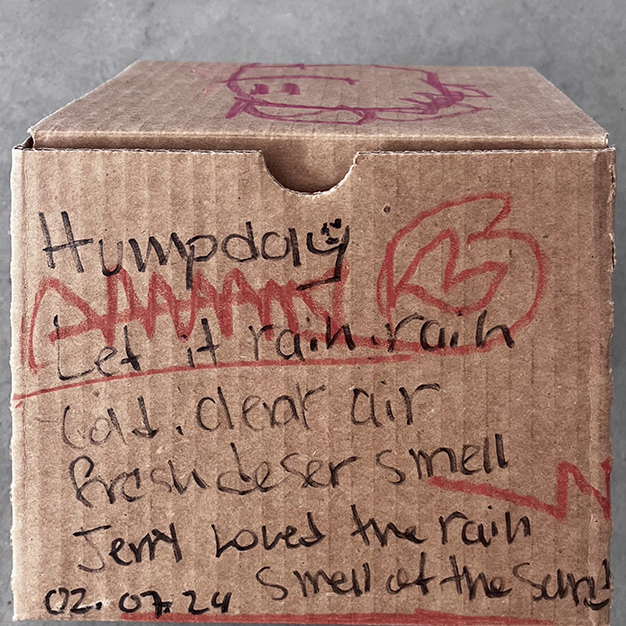 Humpday
Let it rain. rain
Cold. clear air
fresh deser smell
Jerry loved the rain
smell of the
02.07.24